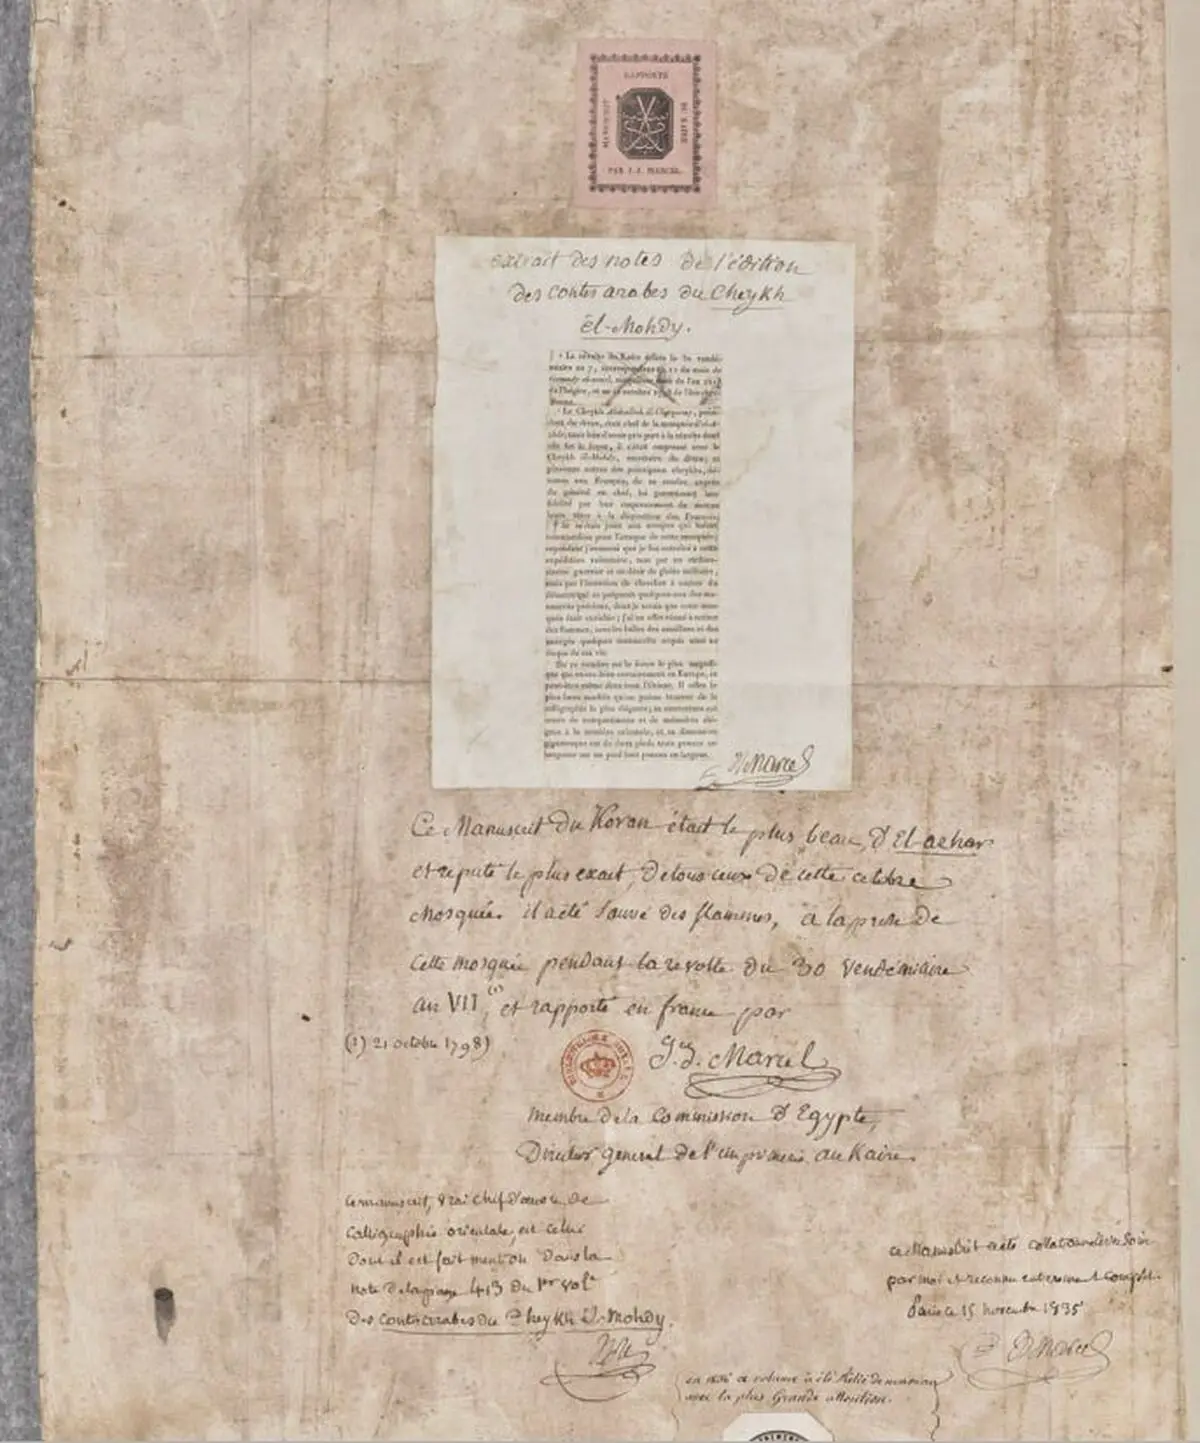 RAPPORTÉ
MANUSCRIT
DU KAIRE
PAR J.-J. MARCEL.
extrait des notes de l'édition
des contes arabes du Cheykh
êl-Mohdy.
¹ La révolte du Kaire éclata le 30 vendé-
miaire an 7, correspondant au 11 du mois de
de l'Hégire, et au 21 octobre 1798 de l'ère chré-
tienne.
² Le Cheykh Abdallah êl-Cherqaouy, prési-
dent du divan, était chef de la mosquée d'êl-A-
zhar; mais loin d'avoir pris part à la révolte dont
elle fut le foyer, il s'était empressé avec le
Cheykh êl-Mohdy, secrétaire du divan, et
plusieurs autres des principaux cheykhs, dé-
voués aux Français, de se rendre auprès
du général en chef, lui garantissant leur
fidélité par leur empressement de mettre
leurs têtes à la disposition des Français.
³ Je m'étais joint aux troupes qui furent
commandées pour l'attaque de cette mosquée;
cependant j'avouerai que je fus entraîné à cette
expédition volontaire, non par un enthou-
siasme guerrier et un désir de gloire militaire,
mais par l'intention de chercher à sauver du
désastre qui se préparait quelques-uns des ma-
nuscrits précieux, dont je savais que cette mos-
quée était enrichie; j'ai en effet réussi à retirer
des flammes, sous les balles des assaillans et des
assiégés quelques manuscrits acquis ainsi au
risque de ma vie.
De ce nombre est le Koran le plus magnifi-
que qui existe bien certainement en Europe, et
peut-être même dans tout l'Orient. Il offre le
plus beau modèle qu'on puisse trouver de la
calligraphie la plus élégante; sa couverture est
ornée de compartimens et de médaillons dis-
posés à la manière orientale, et sa dimension
gigantesque est de deux pieds trois pouces en
longueur sur un pied huit pouces en largeur.
J.J. Marcel
Ce Manuscrit du Koran était le plus beau, d'El-achar
et réputé le plus exact, de tous ceux de cette celebre
Mosquée. il a été sauvé des flammes, à la prise de
cette mosquée pendant la révolte du 30 Vendémiaire
an VII,(1) et rapporté en france par
(1) 21 octobre 1798)
J. J. Marcel
membre de la Commission d'Egypte,
Directeur general de l'imprimerie au Kaire.
ce manuscrit, vrai chef d'œuvre de
calligraphie orientale, est celui
dont il est fait mention dans la
note de la page 413 du 1er vol.
des contes arabes du Cheykh êl-Mohdy.
ce Manuscrit a été collationné avec soin
par moi et reconnu entierement complet.
Paris ce 15 novembre 1835
J. J. Marcel
ce volume a été Relié de nouveau
avec la plus Grande attention.